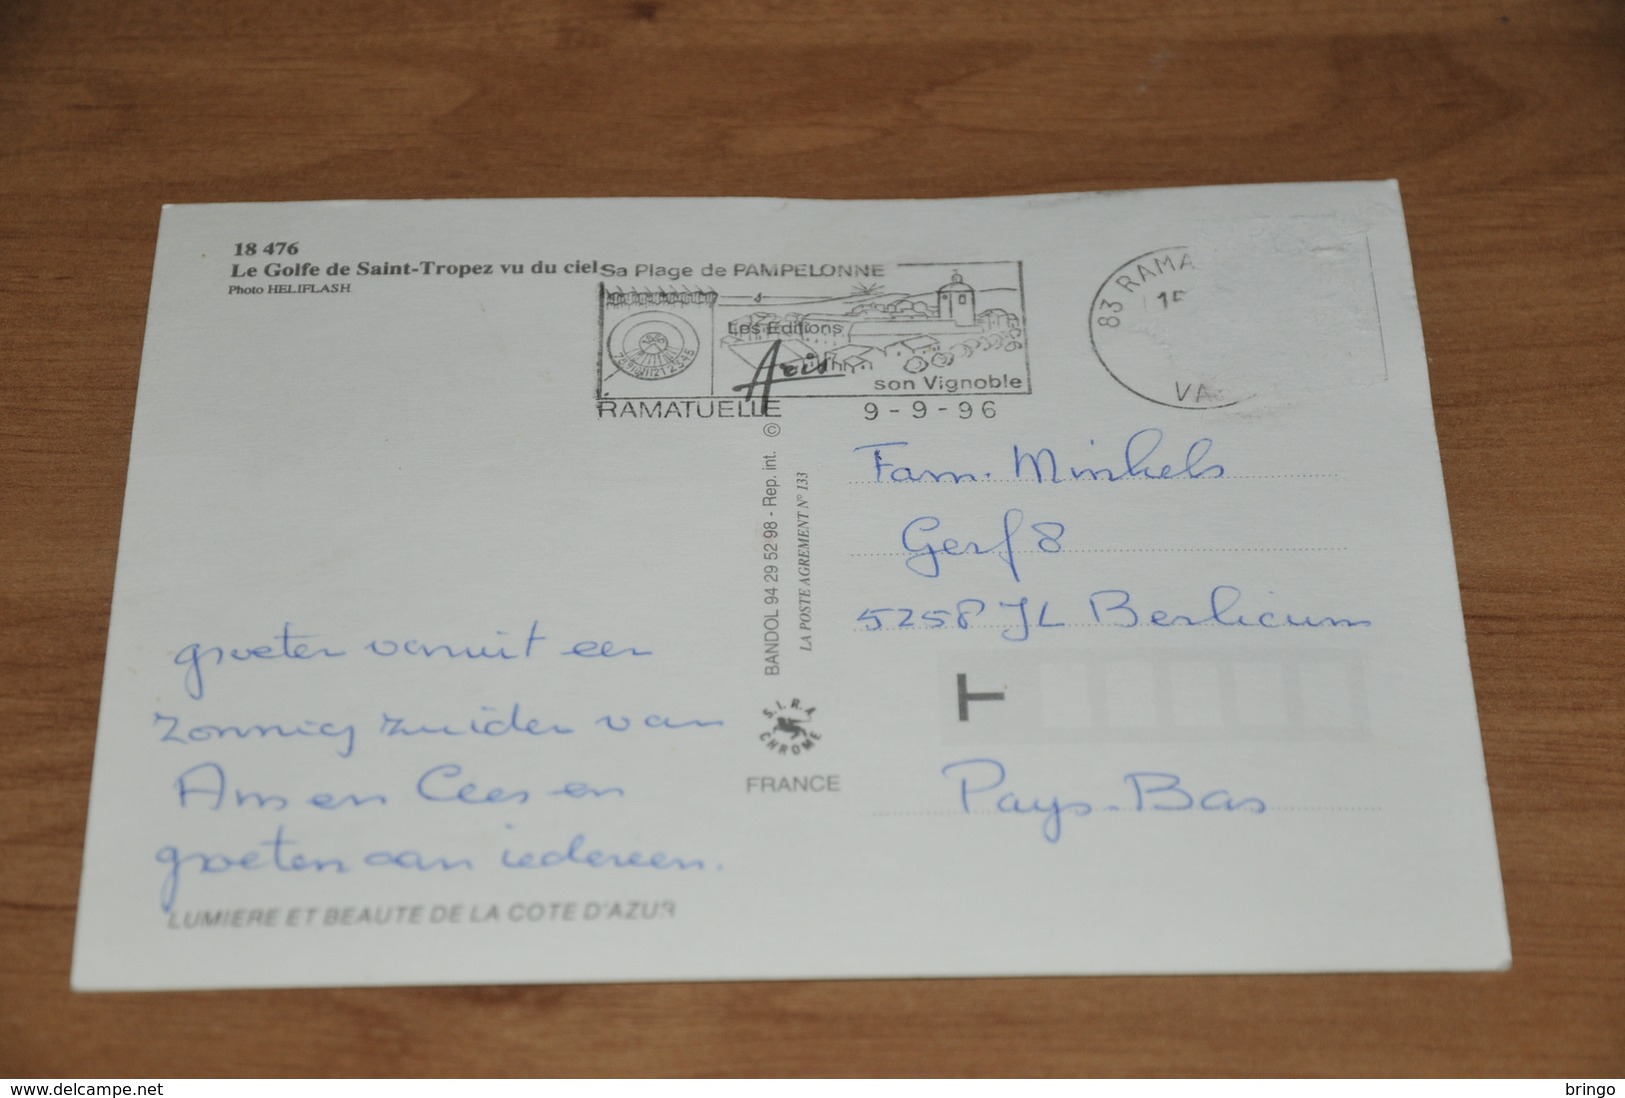 18 476
Le Golfe de Saint-Tropez vu du ciel
Photo HELIFLASH
Sa Plage de PAMPELONNE
Les Editions
Aris
son Vignoble
RAMATUELLE
9-9-96
83 RAMA
15
VA
BANDOL 94 29 52 98 - Rep. int. ©
LA POSTE AGREMENT N° 133
S.I.R.A
CHROME
FRANCE
groeten vanuit een
zonnig zuiden van
Ans en Cees en
groeten aan iedereen.
LUMIERE ET BEAUTE DE LA COTE D'AZUR
Fam. Minkels
Gerf 8
5258 JL Berlicum
T
Pays-Bas
www.delcampe.net
bringo